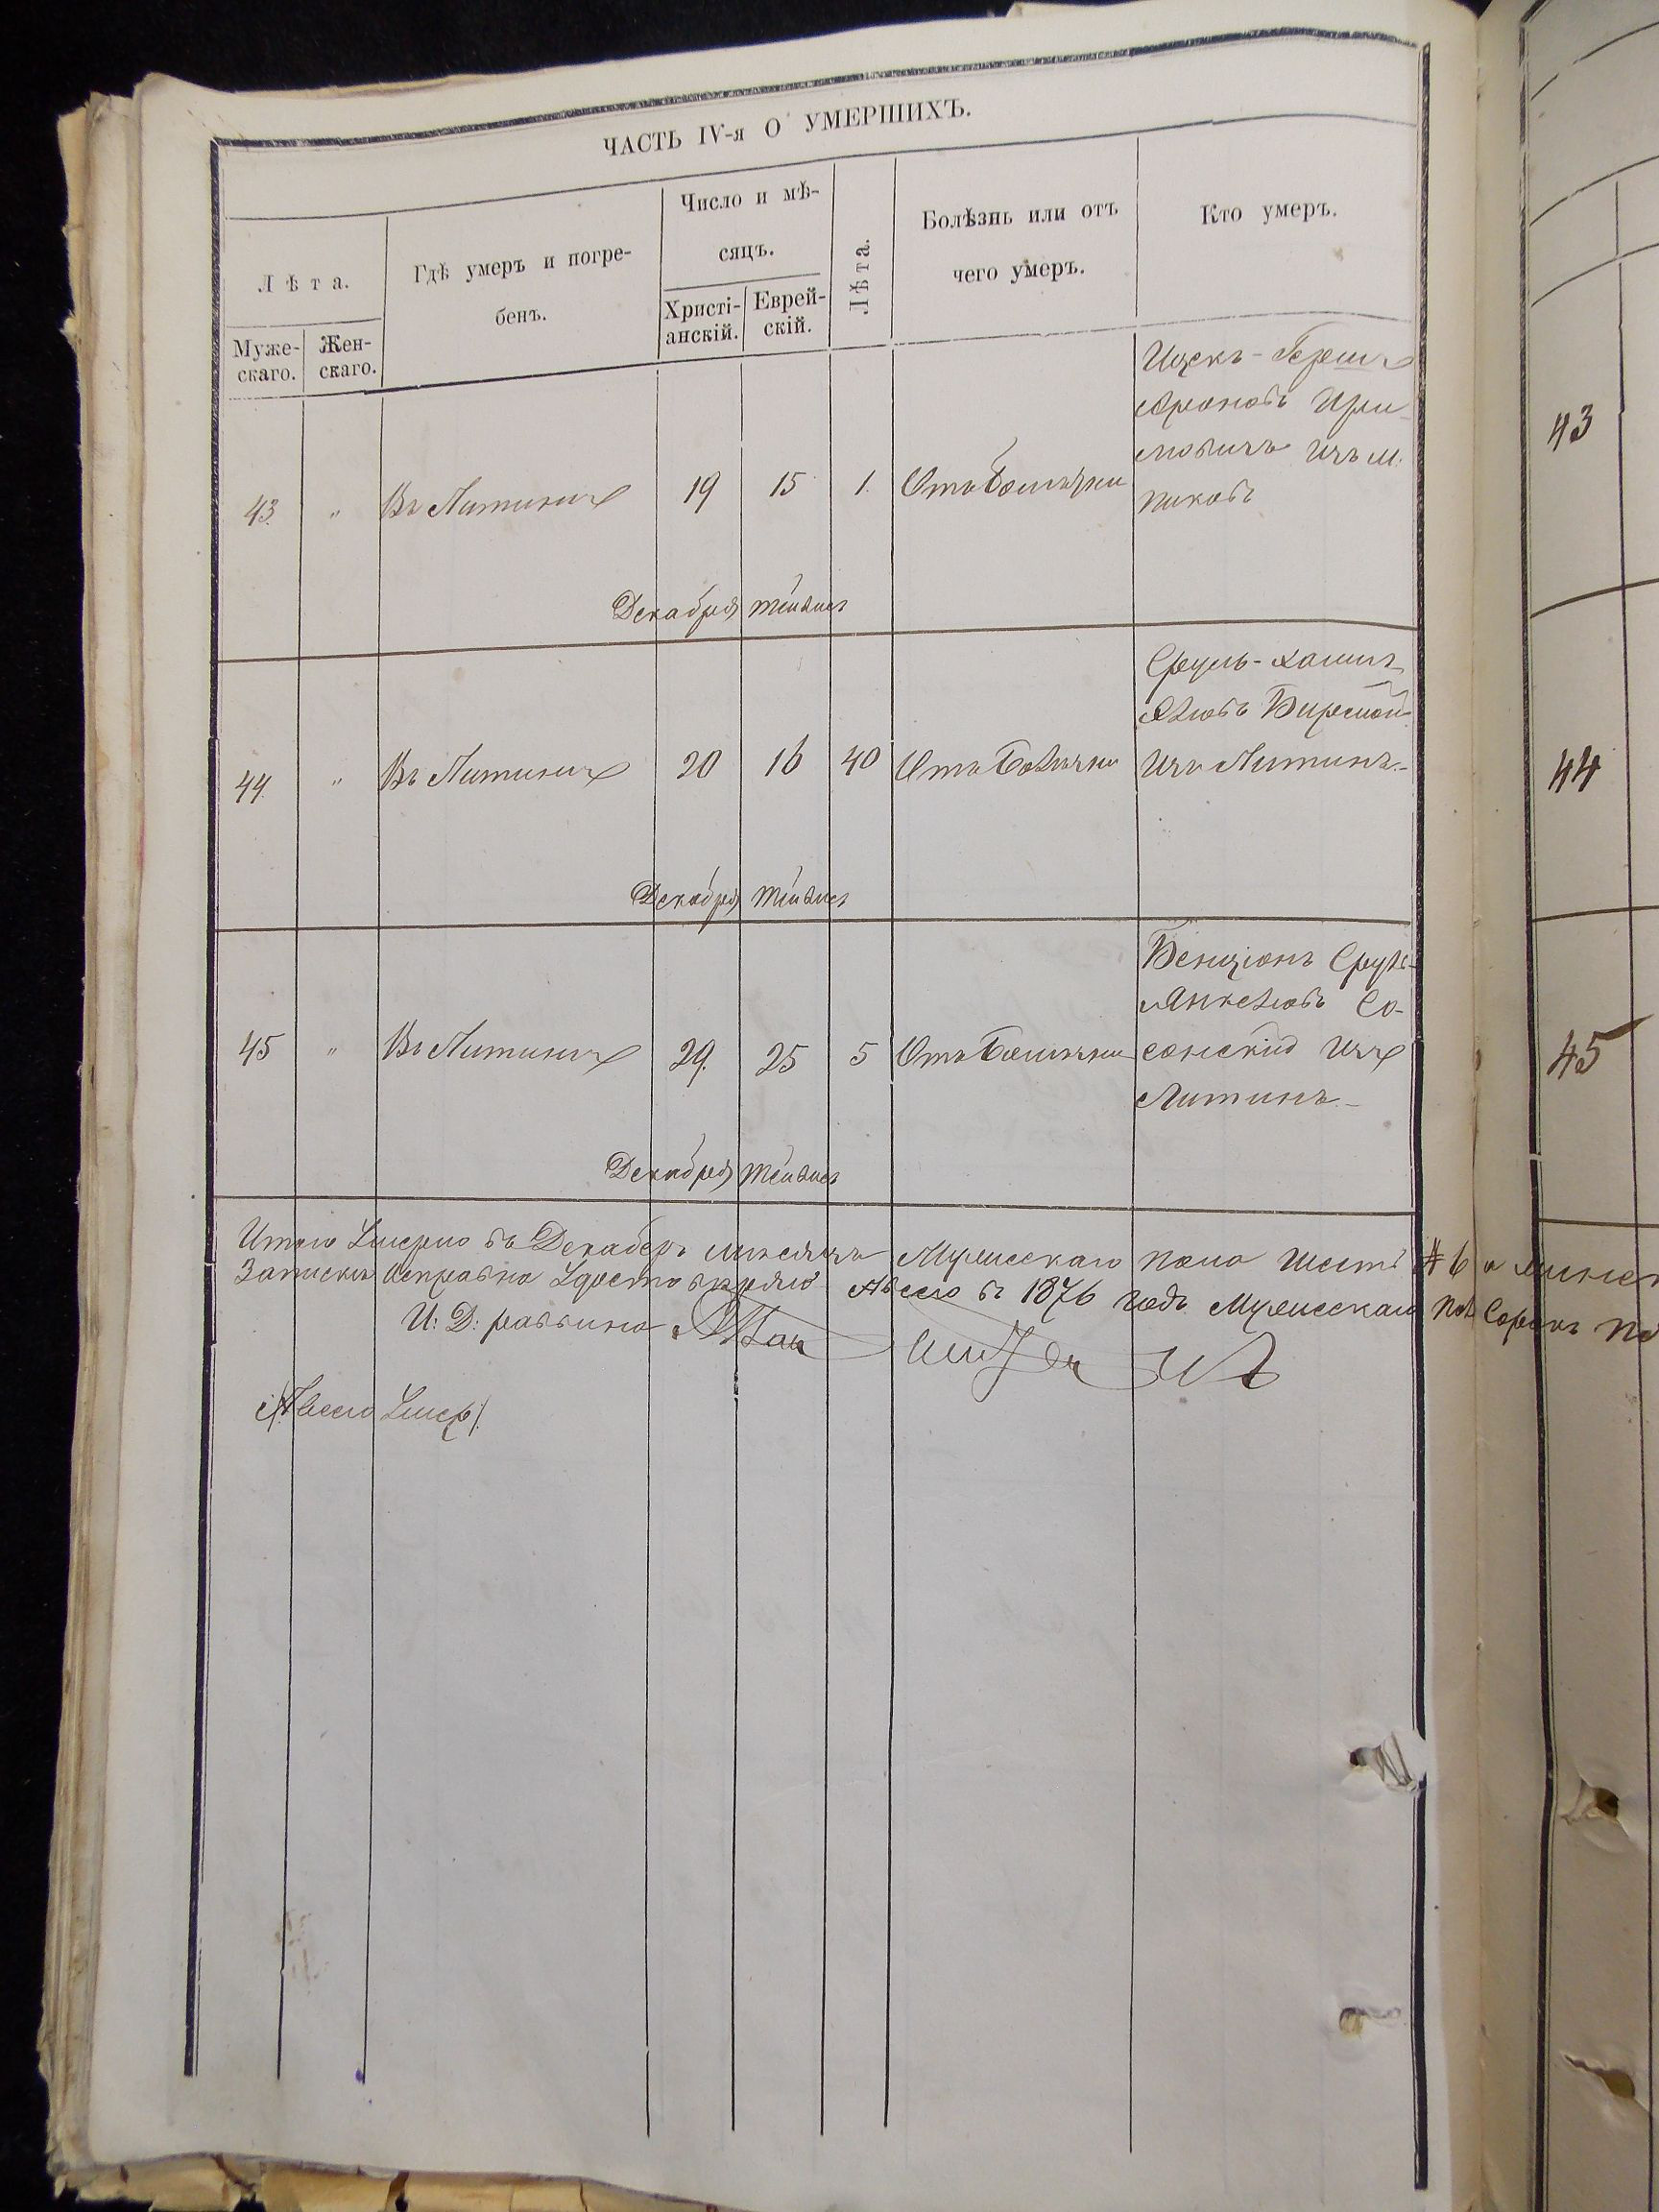 ЧАСТЬ IV-я О УМЕРШИХЪ.
Лѣта.
Муже-
скаго.
Жен-
скаго.
Гдѣ умеръ и погре-
бенъ.
Число и мѣ-
сяцъ.
Христі-
анскій.
Еврей-
скій.
Лѣта.
Болѣзнь или отъ
чего умеръ.
Кто умеръ.
43. " Въ Литинѣ 19 15 1. Отъ болѣзни
Ицекъ-Герш
Ароновъ
изъ м.
Пиковъ
Декабря Тейвисъ
44. " Въ Литинѣ 20 16 40 Отъ Болѣзни
Сруль-Хаимъ
изъ Литинъ.-
Декабря Тейвисъ
45 " Въ Литинѣ 29. 25 5 Отъ Болѣзни
Бенціонъ Сруль
Анкелювъ Со-
сонскій изъ
Литинъ.-
Декабря Тейвисъ
Итого Умерло въ Декабрѣ мѣсяцѣ Мужескаго пола шесть # 6 а
Записки исправно удостовѣряю Авсего въ 1876 годѣ Мужескаго пол Сорокъ
И: Д: раввина
/Авсего Умер/.
43
44
45